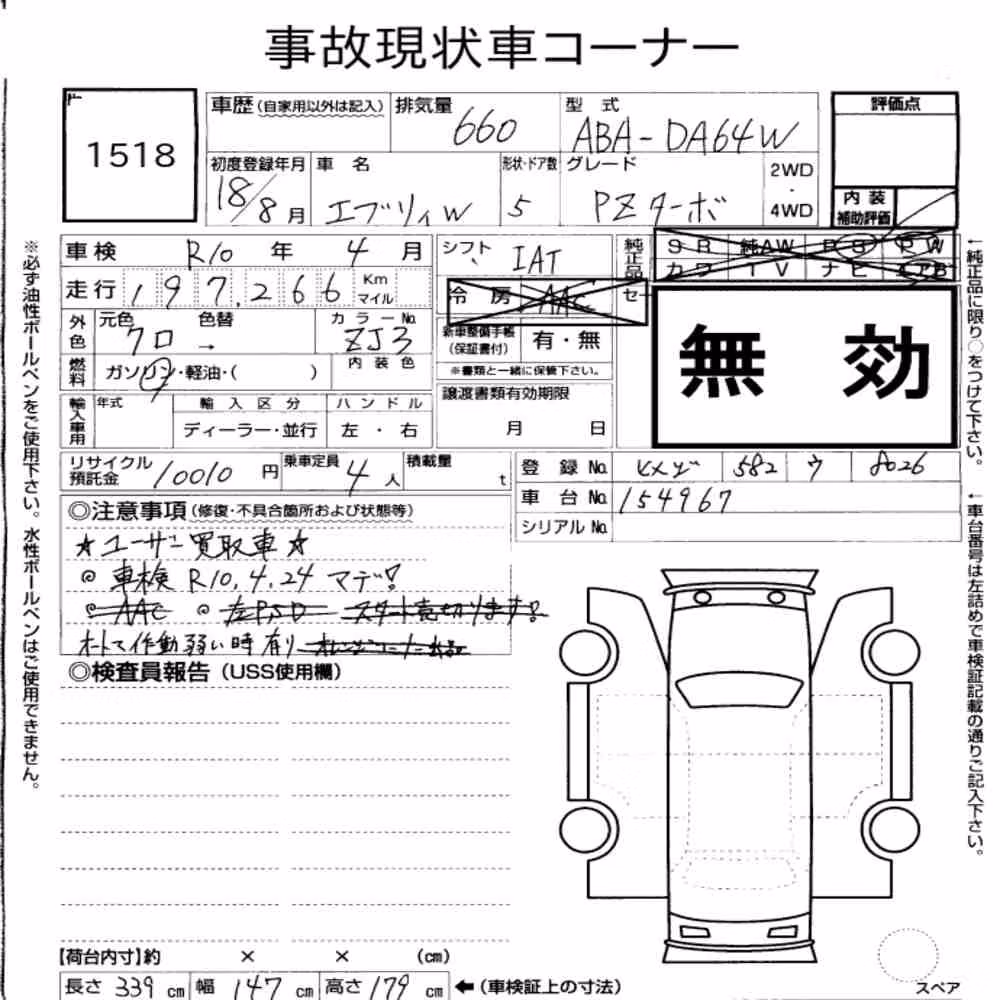 事故現状車コーナー
1518
車歴(自家用以外は記入)
排気量 660
型式 ABA-DA64W
評価点
初度登録年月 18/8月
車名 エブリィW
形状・ドア数 5
グレード PZターボ
2WD・4WD
内装補助評価
車検 R10年 4月
シフト IAT
純正品
SR 純AW PS PW
カワ TV ナビ エアB
走行 197,266 Km マイル
冷房 AAC
セ
外色 元色 クロ → 色替
カラーNo. ZJ3
新車整備手帳(保証書付) 有・無
※書類と一緒に保管下さい。
無効
燃料 ガソリン・軽油・( )
内装色
輸入車用 年式 輸入区分 ハンドル
ディーラー・並行 左・右
譲渡書類有効期限
月 日
リサイクル預託金 10010円
乗車定員 4人
積載量 t
登録No. ヒメジ 582 ウ 8026
車台No. 154967
シリアルNo.
◎注意事項(修復・不具合箇所および状態等)
★ユーザー買取車★
◎車検 R10.4.24 マデ!
◎AAC ◎左PSD スタート売切ります!
オートマ作動弱い時有り オレンジコーナー出品
◎検査員報告(USS使用欄)
【荷台内寸】約 × × (cm)
長さ 339cm 幅 147cm 高さ 179cm ←(車検証上の寸法)
スペア
※必ず油性ボールペンをご使用下さい。水性ボールペンはご使用できません。
←純正品に限り○をつけて下さい。
←車台番号は左詰めで車検証記載の通りご記入下さい。